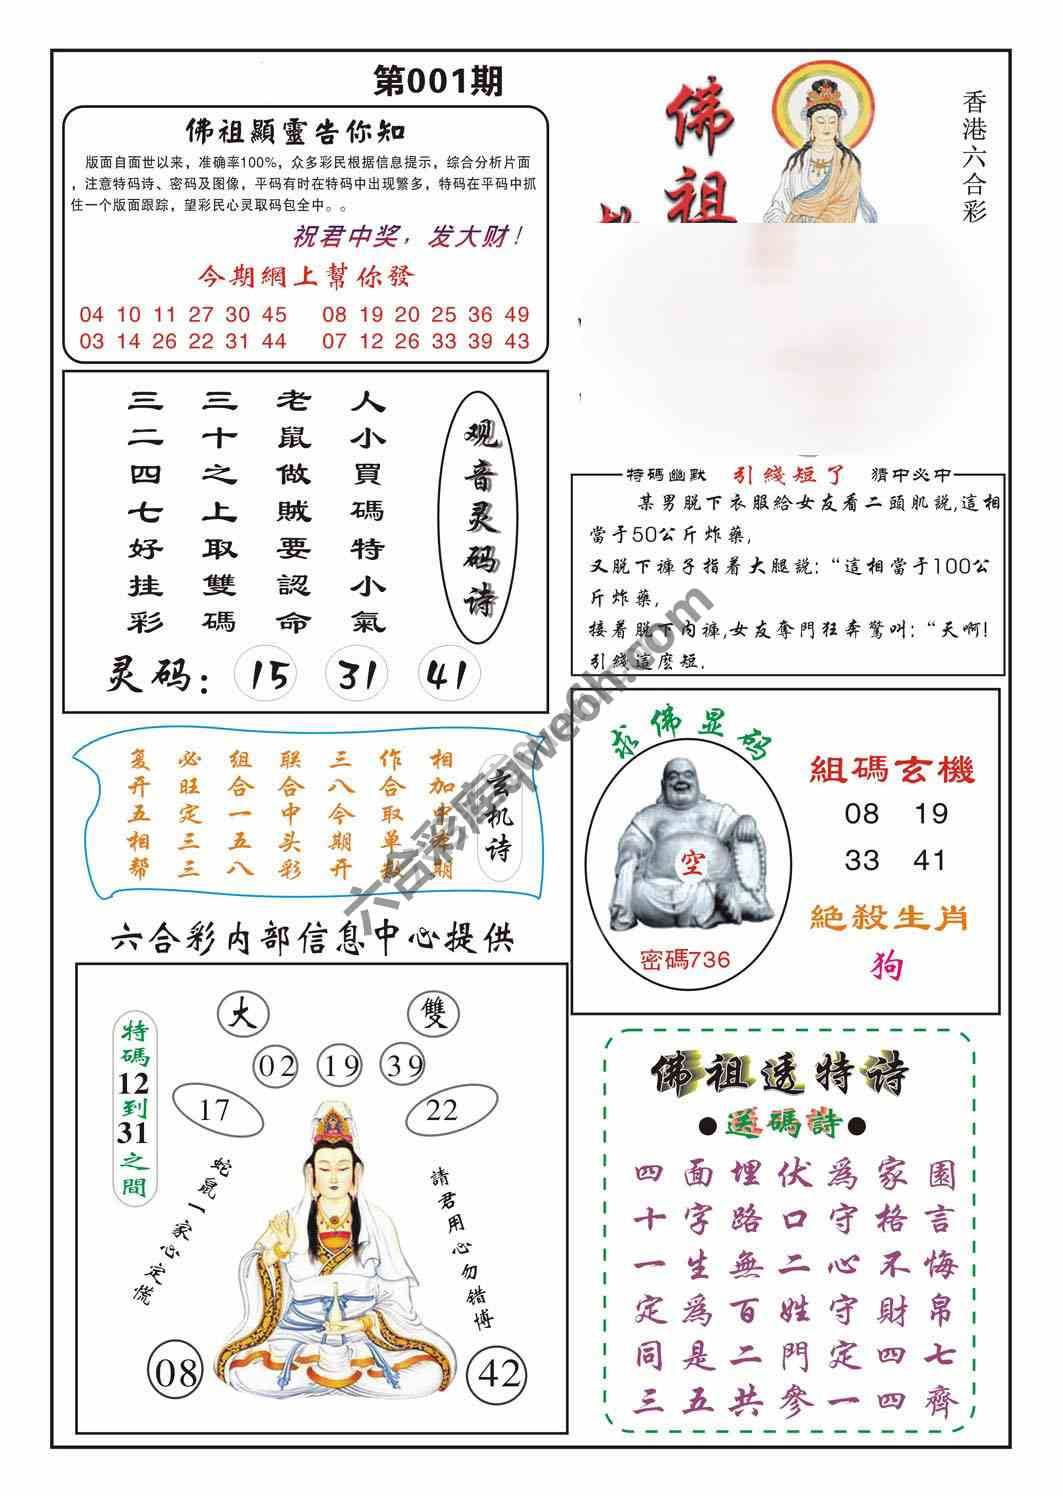 第001期
佛祖顯靈告你知
版面自面世以来，准确率100%，众多彩民根据信息提示，综合分析片面
，注意特码诗、密码及图像，平码有时在特码中出现繁多，特码在平码中抓
住一个版面跟踪，望彩民心灵取码包全中。。
祝君中奖，发大财！
今期網上幫你發
04 10 11 27 30 45 08 19 20 25 36 49
03 14 26 22 31 44 07 12 26 33 39 43
佛祖
香港六合彩
观音灵码诗
人小買碼特小氣
老鼠做賊要認命
三十之上取雙碼
三二四七好挂彩
灵码：15 31 41
特碼幽默 引綫短了 猜中必中
某男脫下衣服給女友看二頭肌説,這相
當于50公斤炸藥,
又脫下褲子指着大腿説:“這相當于100公
斤炸藥,
接着脫下内褲,女友奪門狂奔驚叫:“天啊!
引綫這麽短.
玄机诗
相加中
期
作合取单数
三八今期开
联合中头彩
组合一五八
必旺定三三
复开五相帮
求佛显码
空
密碼736
組碼玄機
08 19
33 41
絕殺生肖
狗
六合彩内部信息中心提供
特碼12到31之間
大 雙
02 19 39
17 22
蛇鼠一家心定慌
請君用心勿错博
08 42
佛祖透特诗
●送碼詩●
四面埋伏爲家園
十字路口守格言
一生無二心不悔
定爲百姓守財帛
同是二門定四七
三五共參一四齊
六合彩库qwe6h.com